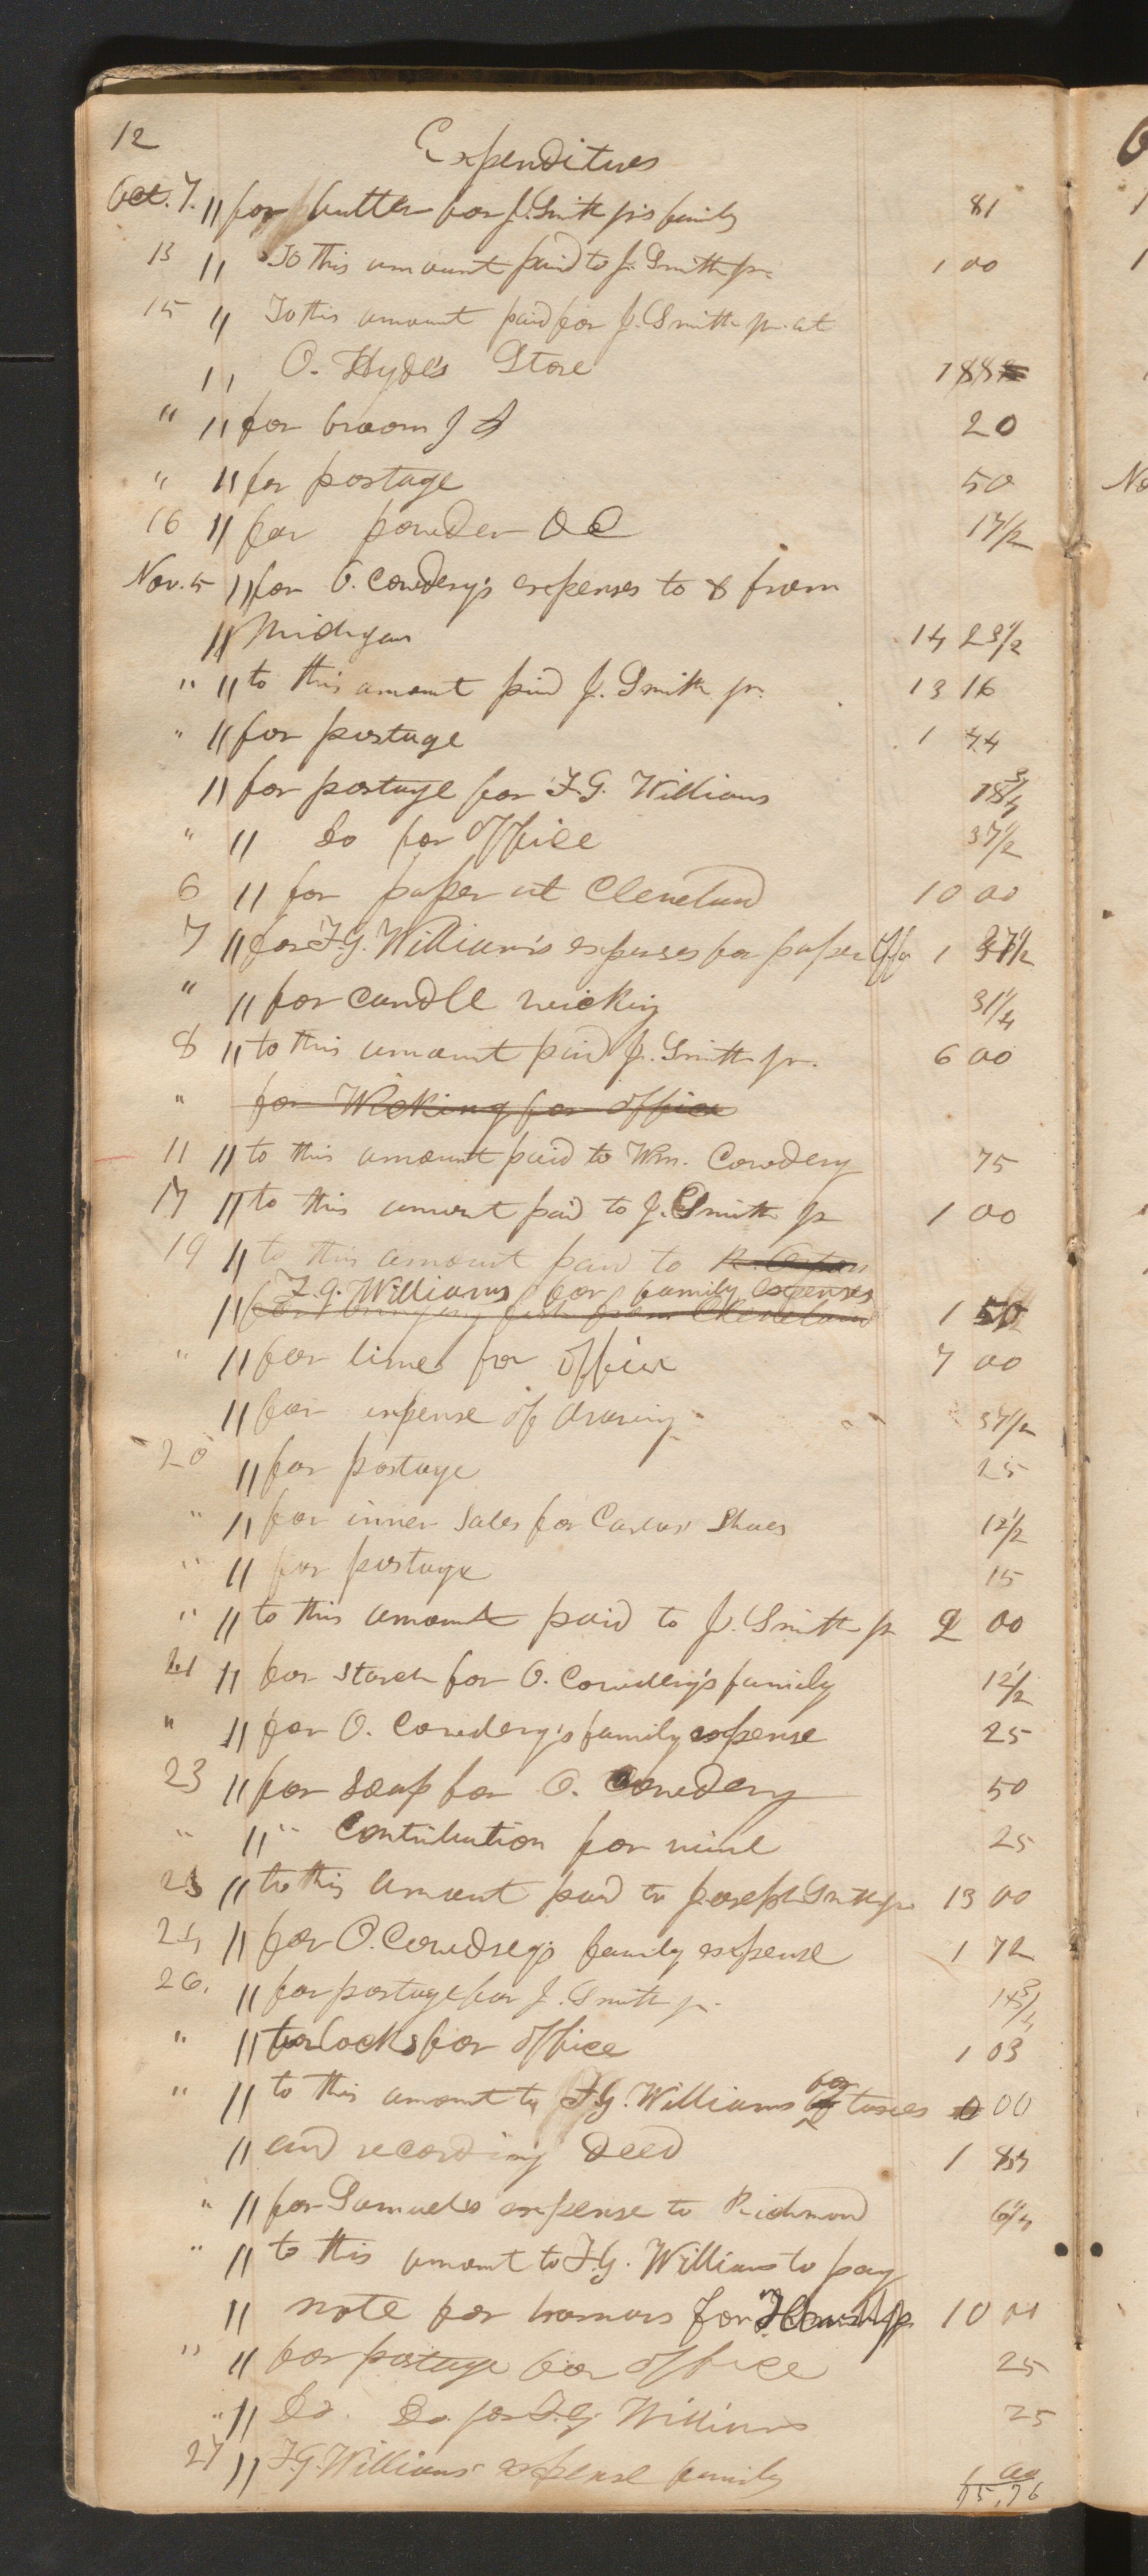 12 Expenditures
Oct. 7. " for butter for J. Smith jr's family 81
13 " To this amount paid to J. Smith jr. 1 00
15 " To this amount paid for J. Smith jr. at
" O. Hyde's Store 1 88
" " for broom J S 20
" " for postage 50
16 " for powder O C 17/2
Nov. 5 " for O. Cowdery's expenses to & from
" Michigan 14 23 1/2
" " to this amount paid J. Smith jr. 13 16
" " for postage 1 44
" for postage for F. G. Williams 18 3/4
" " Do for office 37 1/2
6 " for paper at Cleveland 10 00
7 " for F. G. William's expenses for paper 1 37 1/2
" " for candle wicking 31 1/4
8 " to this amount paid J. Smith jr. 6 00
" for Wicking for office
11 " to this amount paid to Wm. Cowdery 75
17 " to this amount paid to J. Smith jr 1 00
19 " to this amount paid to
F. G. Williams for family expenses
" from Cleveland 1 50
" " for lime for office 7 00
" for expense of drawing 37 1/2
20 " for postage 25
" " for inner soles for Shoes 12 1/2
" " for postage 15
" " to this amount paid to J. Smith jr 2 00
21 " for starch for O. Cowdery's family 12 1/2
" " for O. Cowdery's family expense 25
23 " for soap for O. Cowdery 50
" " " Contribution for wine 25
23 " to this amount paid to Joseph Smith jr. 13 00
24 " for O. Cowdrey's family expense 1 72
26. " for postage for J. Smith jr. 3/4
" " for locks for office 1 03
" " to this amount to F. G. Williams for taxes 00
" and recording deed 1 83
" " for Samuel's expense to Richmond 6 1/4
" " to this amount to F. G. Williams to pay
" note for for 10 00
" " for postage for office 25
" " Do. Do. for F. G. Williams 25
27 " F. G. Williams' expense family 1 00